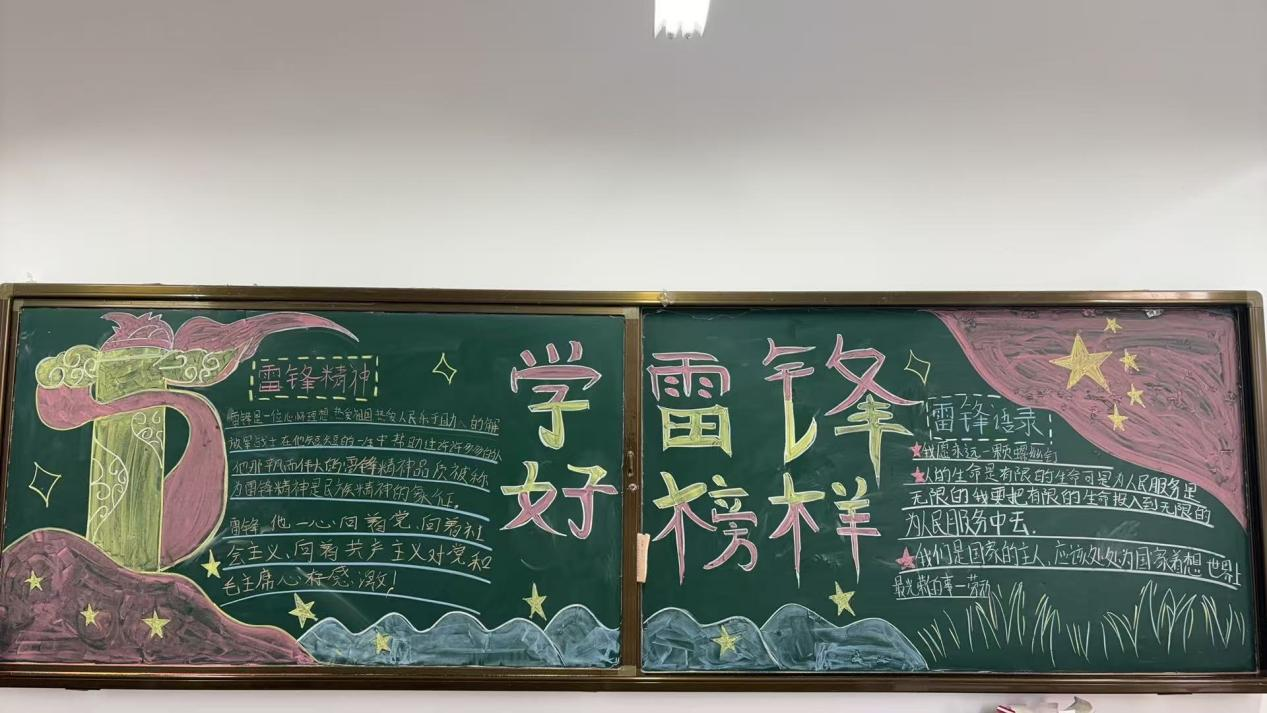 雷锋精神
雷锋是一位心怀理想 热爱祖国热爱人民乐于助人的解
放军战士在他短短的一生中帮助过许许多多的人
他那 而伟大的雷锋精神品 被称
为雷锋精神是民族精神的象征.
雷锋,他一心,向着党,向着社
会主义、向着共产主义对党和
毛主席心存感激!
学 雷 锋
好 榜 样
雷锋语录
我愿永远 一颗螺丝钉
人的生命是有限的生命可是为人民服务是
无限的我要把有限的生命投入到无限的
为人民服务中去.
我们是国家的主人,应该处处为国家着想 世界上
最光荣的事—劳动